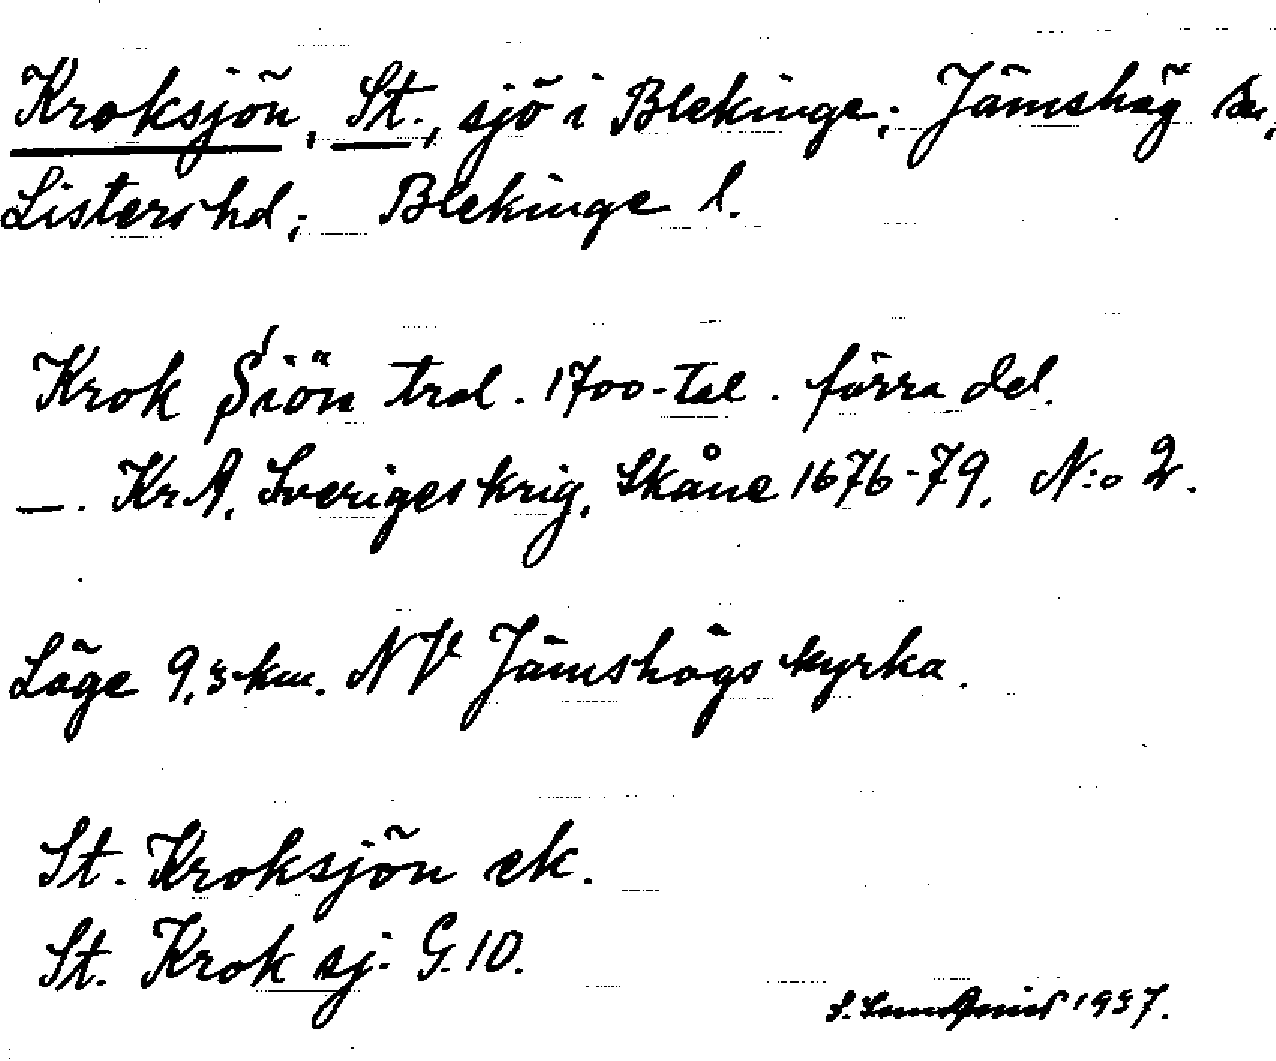 Kroksjön, St., sjö i Blekinge; Jämshög sn,
Listers hd; Blekinge l.
Krok Siön trol. 1700-tal. förra del.
—. KrA. Sveriges krig. Skåne 1676-79. N:o 2.
Läge 9,5 km. NV Jämshögs kyrka.
St. Kroksjön ek.
St. Krok sj. G. 10.
1937.